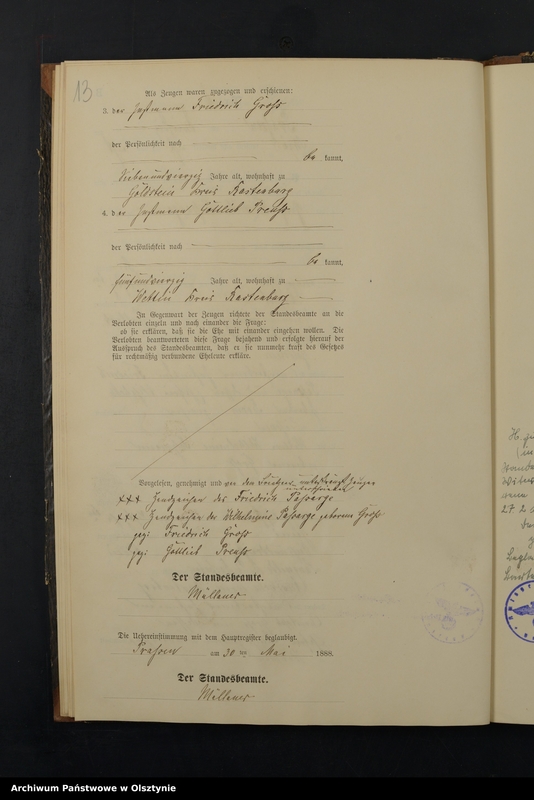 13
Als Zeugen waren zugezogen und erschienen:
3. der Instmann Friedrich Groß
der Persönlichkeit nach
be kannt,
Siebenundvierzig Jahre alt, wohnhaft zu
Goldstein Kreis Rastenburg
4. der Instmann Gottlieb Preuß
der Persönlichkeit nach
be kannt,
fünfundvierzig Jahre alt, wohnhaft zu
Kreis Rastenburg
In Gegenwart der Zeugen richtete der Standesbeamte an die
Verlobten einzeln und nach einander die Frage:
ob sie erklären, daß sie die Ehe mit einander eingehen wollen. Die
Verlobten beantworteten diese Frage bejahend und erfolgte hierauf der
Ausspruch des Standesbeamten, daß er sie nunmehr kraft des Gesetzes
für rechtmäßig verbundene Eheleute erkläre.
Vorgelesen, genehmigt und von den
unterschrieben
+++ Handzeichen des Friedrich Passarge
+++ Handzeichen der Wilhelmine Passarge geborene Groß
gez: Friedrich Groß
gez: Gottlieb Preuß
Der Standesbeamte.
Die Uebereinstimmung mit dem Hauptregister beglaubigt.
am 30 ten Mai 1888.
Der Standesbeamte.
Archiwum Państwowe w Olsztynie